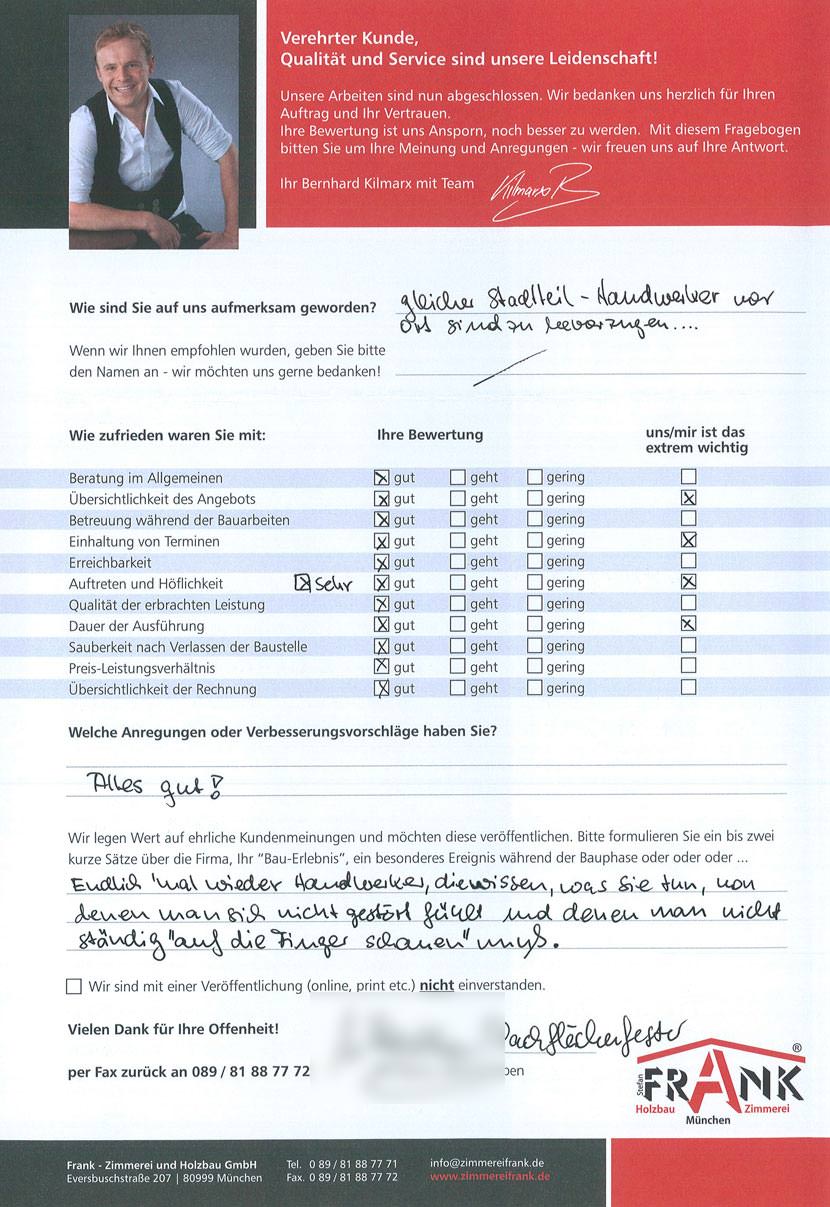 Verehrter Kunde,
Qualität und Service sind unsere Leidenschaft!
Unsere Arbeiten sind nun abgeschlossen. Wir bedanken uns herzlich für Ihren
Auftrag und Ihr Vertrauen.
Ihre Bewertung ist uns Ansporn, noch besser zu werden. Mit diesem Fragebogen
bitten Sie um Ihre Meinung und Anregungen - wir freuen uns auf Ihre Antwort.
Ihr Bernhard Kilmarx mit Team
Wie sind Sie auf uns aufmerksam geworden? gleicher Stadtteil - Handwerker vor
Ort sind zu bevorzugen....
Wenn wir Ihnen empfohlen wurden, geben Sie bitte
den Namen an - wir möchten uns gerne bedanken!
Wie zufrieden waren Sie mit: Ihre Bewertung uns/mir ist das
extrem wichtig
Beratung im Allgemeinen gut geht gering
Übersichtlichkeit des Angebots gut geht gering
Betreuung während der Bauarbeiten gut geht gering
Einhaltung von Terminen gut geht gering
Erreichbarkeit gut geht gering
Auftreten und Höflichkeit Sehr gut geht gering
Qualität der erbrachten Leistung gut geht gering
Dauer der Ausführung gut geht gering
Sauberkeit nach Verlassen der Baustelle gut geht gering
Preis-Leistungsverhältnis gut geht gering
Übersichtlichkeit der Rechnung gut geht gering
Welche Anregungen oder Verbesserungsvorschläge haben Sie?
Alles gut!
Wir legen Wert auf ehrliche Kundenmeinungen und möchten diese veröffentlichen. Bitte formulieren Sie ein bis zwei
kurze Sätze über die Firma, Ihr "Bau-Erlebnis", ein besonderes Ereignis während der Bauphase oder oder oder ...
Endlich 'mal wieder Handwerker, die wissen, was Sie tun, von
denen man sich nicht gestört fühlt und denen man nicht
ständig "auf die Finger schauen" muß.
Wir sind mit einer Veröffentlichung (online, print etc.) nicht einverstanden.
Vielen Dank für Ihre Offenheit!
per Fax zurück an 089 / 81 88 77 72
ben
Stefan
FRANK®
Holzbau Zimmerei
München
Frank - Zimmerei und Holzbau GmbH Tel. 0 89 / 81 88 77 71 info@zimmereifrank.de
Eversbuschstraße 207 | 80999 München Fax. 0 89 / 81 88 77 72 www.zimmereifrank.de